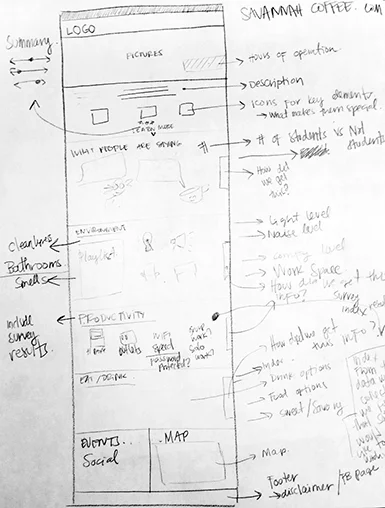 SAVANNAH COFFEE. COM
LOGO
Summary
PICTURES
Hours of operation
Description
Icons for key elements
what makes them special.
LEARN MORE
WHAT PEOPLE ARE SAYING
# # of students vs Not
students
How did
we get
this?
ENVIRONMENT
Light level
Noise level
Cleanliness
Bathrooms
Smells
Playlist
comfy level
Work space
How did we get the
info?
survey
PRODUCTIVITY
include
survey
results.
outlets
WIFI
speed
password
protected?
group
work?
solo
work?
How did we get
this info?
Index
EAT/DRINK
Drink options
Food options
sweet/savory
EVENTS..
Social
MAP
Map.
Footer
disclaimer / FB page